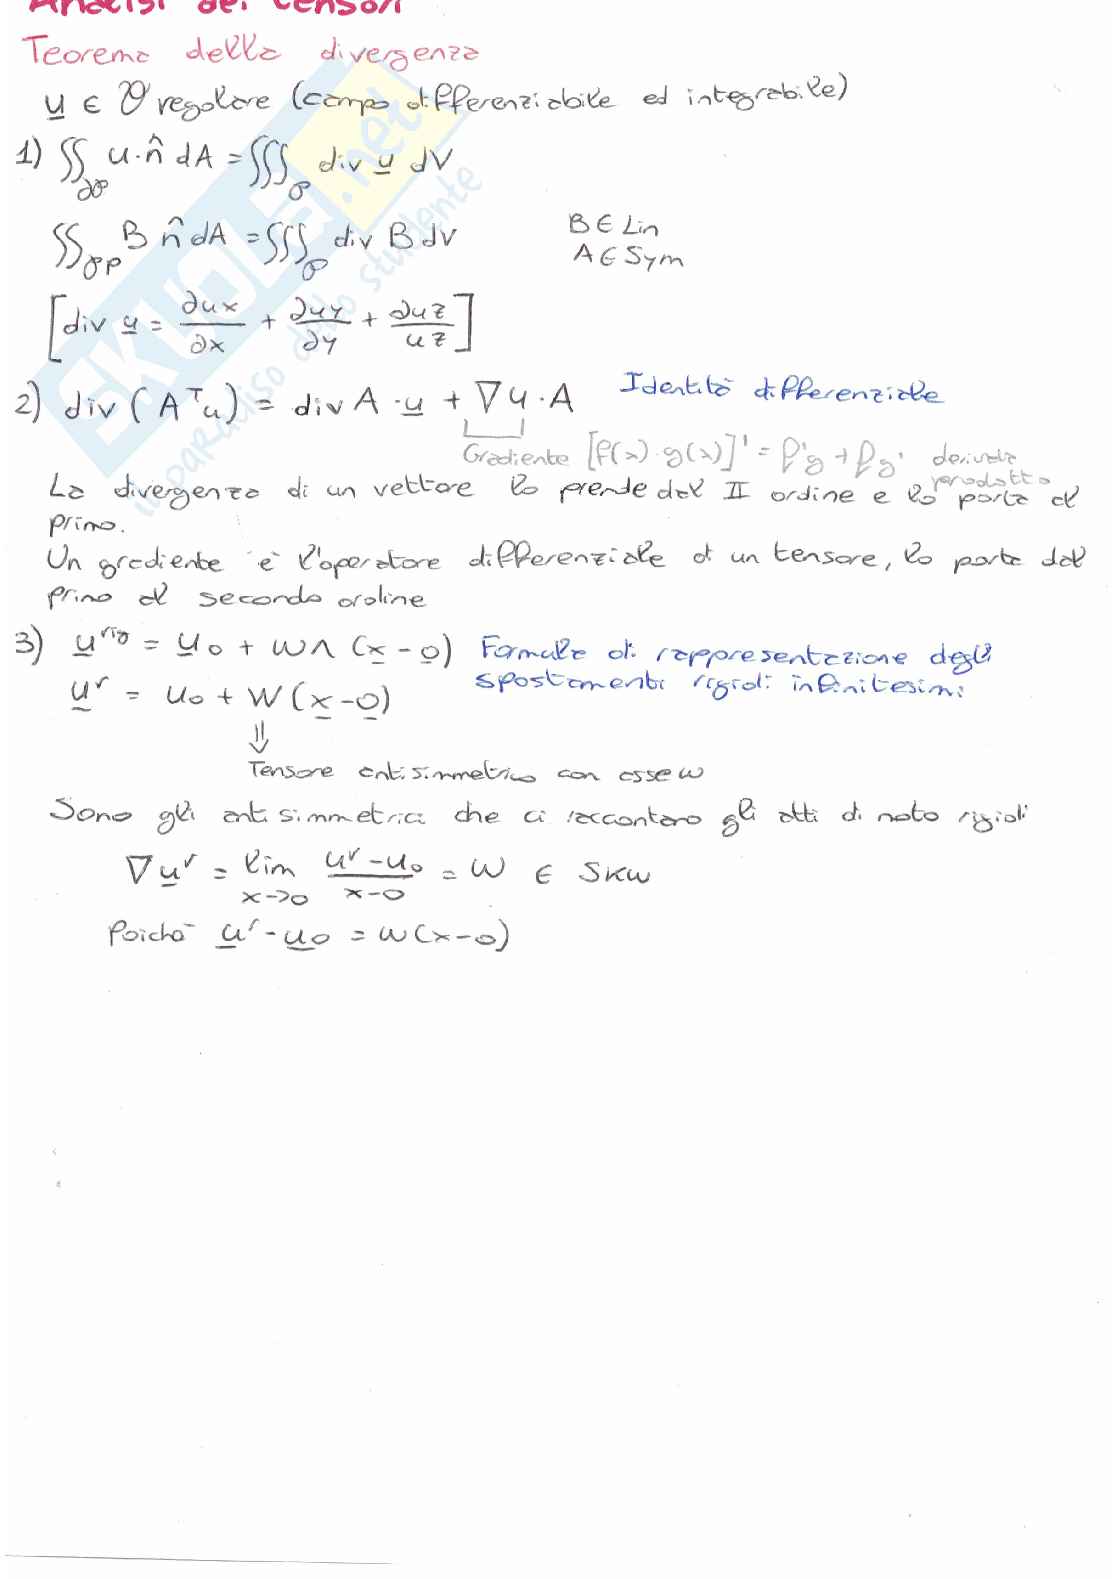 Analisi dei tensori
Teorema della divergenza
u ∈ 𝒱 regolare (campo differenziabile ed integrabile)
1) ∬_∂𝒫 u·n̂ dA = ∭_𝒫 div u dV
∬_∂P B n̂ dA = ∭_𝒫 div B dV B ∈ Lin
A ∈ Sym
[div u = ∂ux/∂x + ∂uy/∂y + ∂uz/uz]
2) div (Aᵀu) = div A · u + ∇u · A Identità differenziale
Gradiente [f(x)·g(x)]' = f'g + fg' derivata prodotto
La divergenza di un vettore lo prende dal II ordine e lo porta al
primo.
Un gradiente è l'operatore differenziale di un tensore, lo porta dal
primo al secondo ordine
3) u^rig = u₀ + w∧(x-o) Formula di rappresentazione degli
spostamenti rigidi infinitesimi
u^r = u₀ + W(x-o)
⇓
Tensore antisimmetrico con asse w
Sono gli antisimmetrici che ci raccontano gli atti di moto rigidi
∇u^r = lim x→o (u^r - u₀)/(x-o) = W ∈ Skw
Poiché u^r - u₀ = W(x-o)
SKUOLA.net
il paradiso dello studente